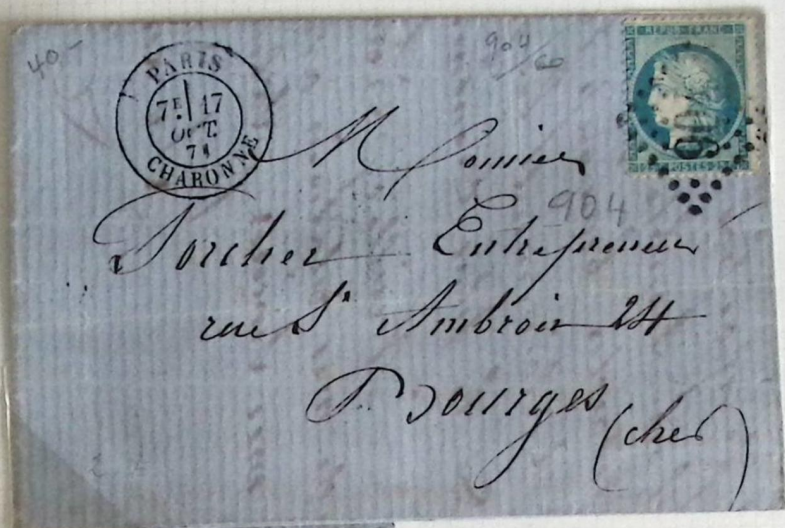 40-
904/60
PARIS
7E 17
OCT.
71
CHARONNE
REPUB. FRANC.
904
POSTES
Monsieur
904
Porcher Entrepreneur
rue St Ambroix 24
Bourges
(cher)